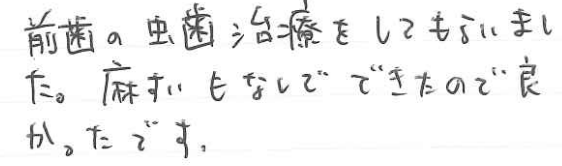 前歯の虫歯治療をしてもらいまし
た。麻すいもなしでできたので良
かったです。